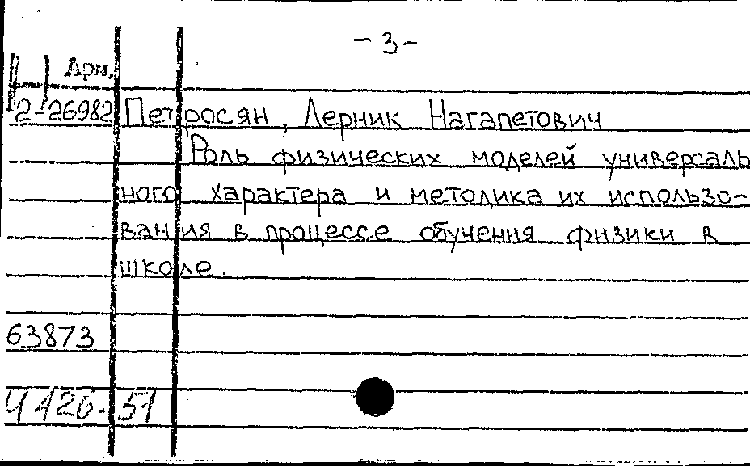 - 3 -
Арм.
2-26982 Петросян, Лерник Нагапетович
Роль физических моделей универсаль
ного характера и методика их использо-
вания в процессе обучения физики в
школе.
63873
Ч 426.51